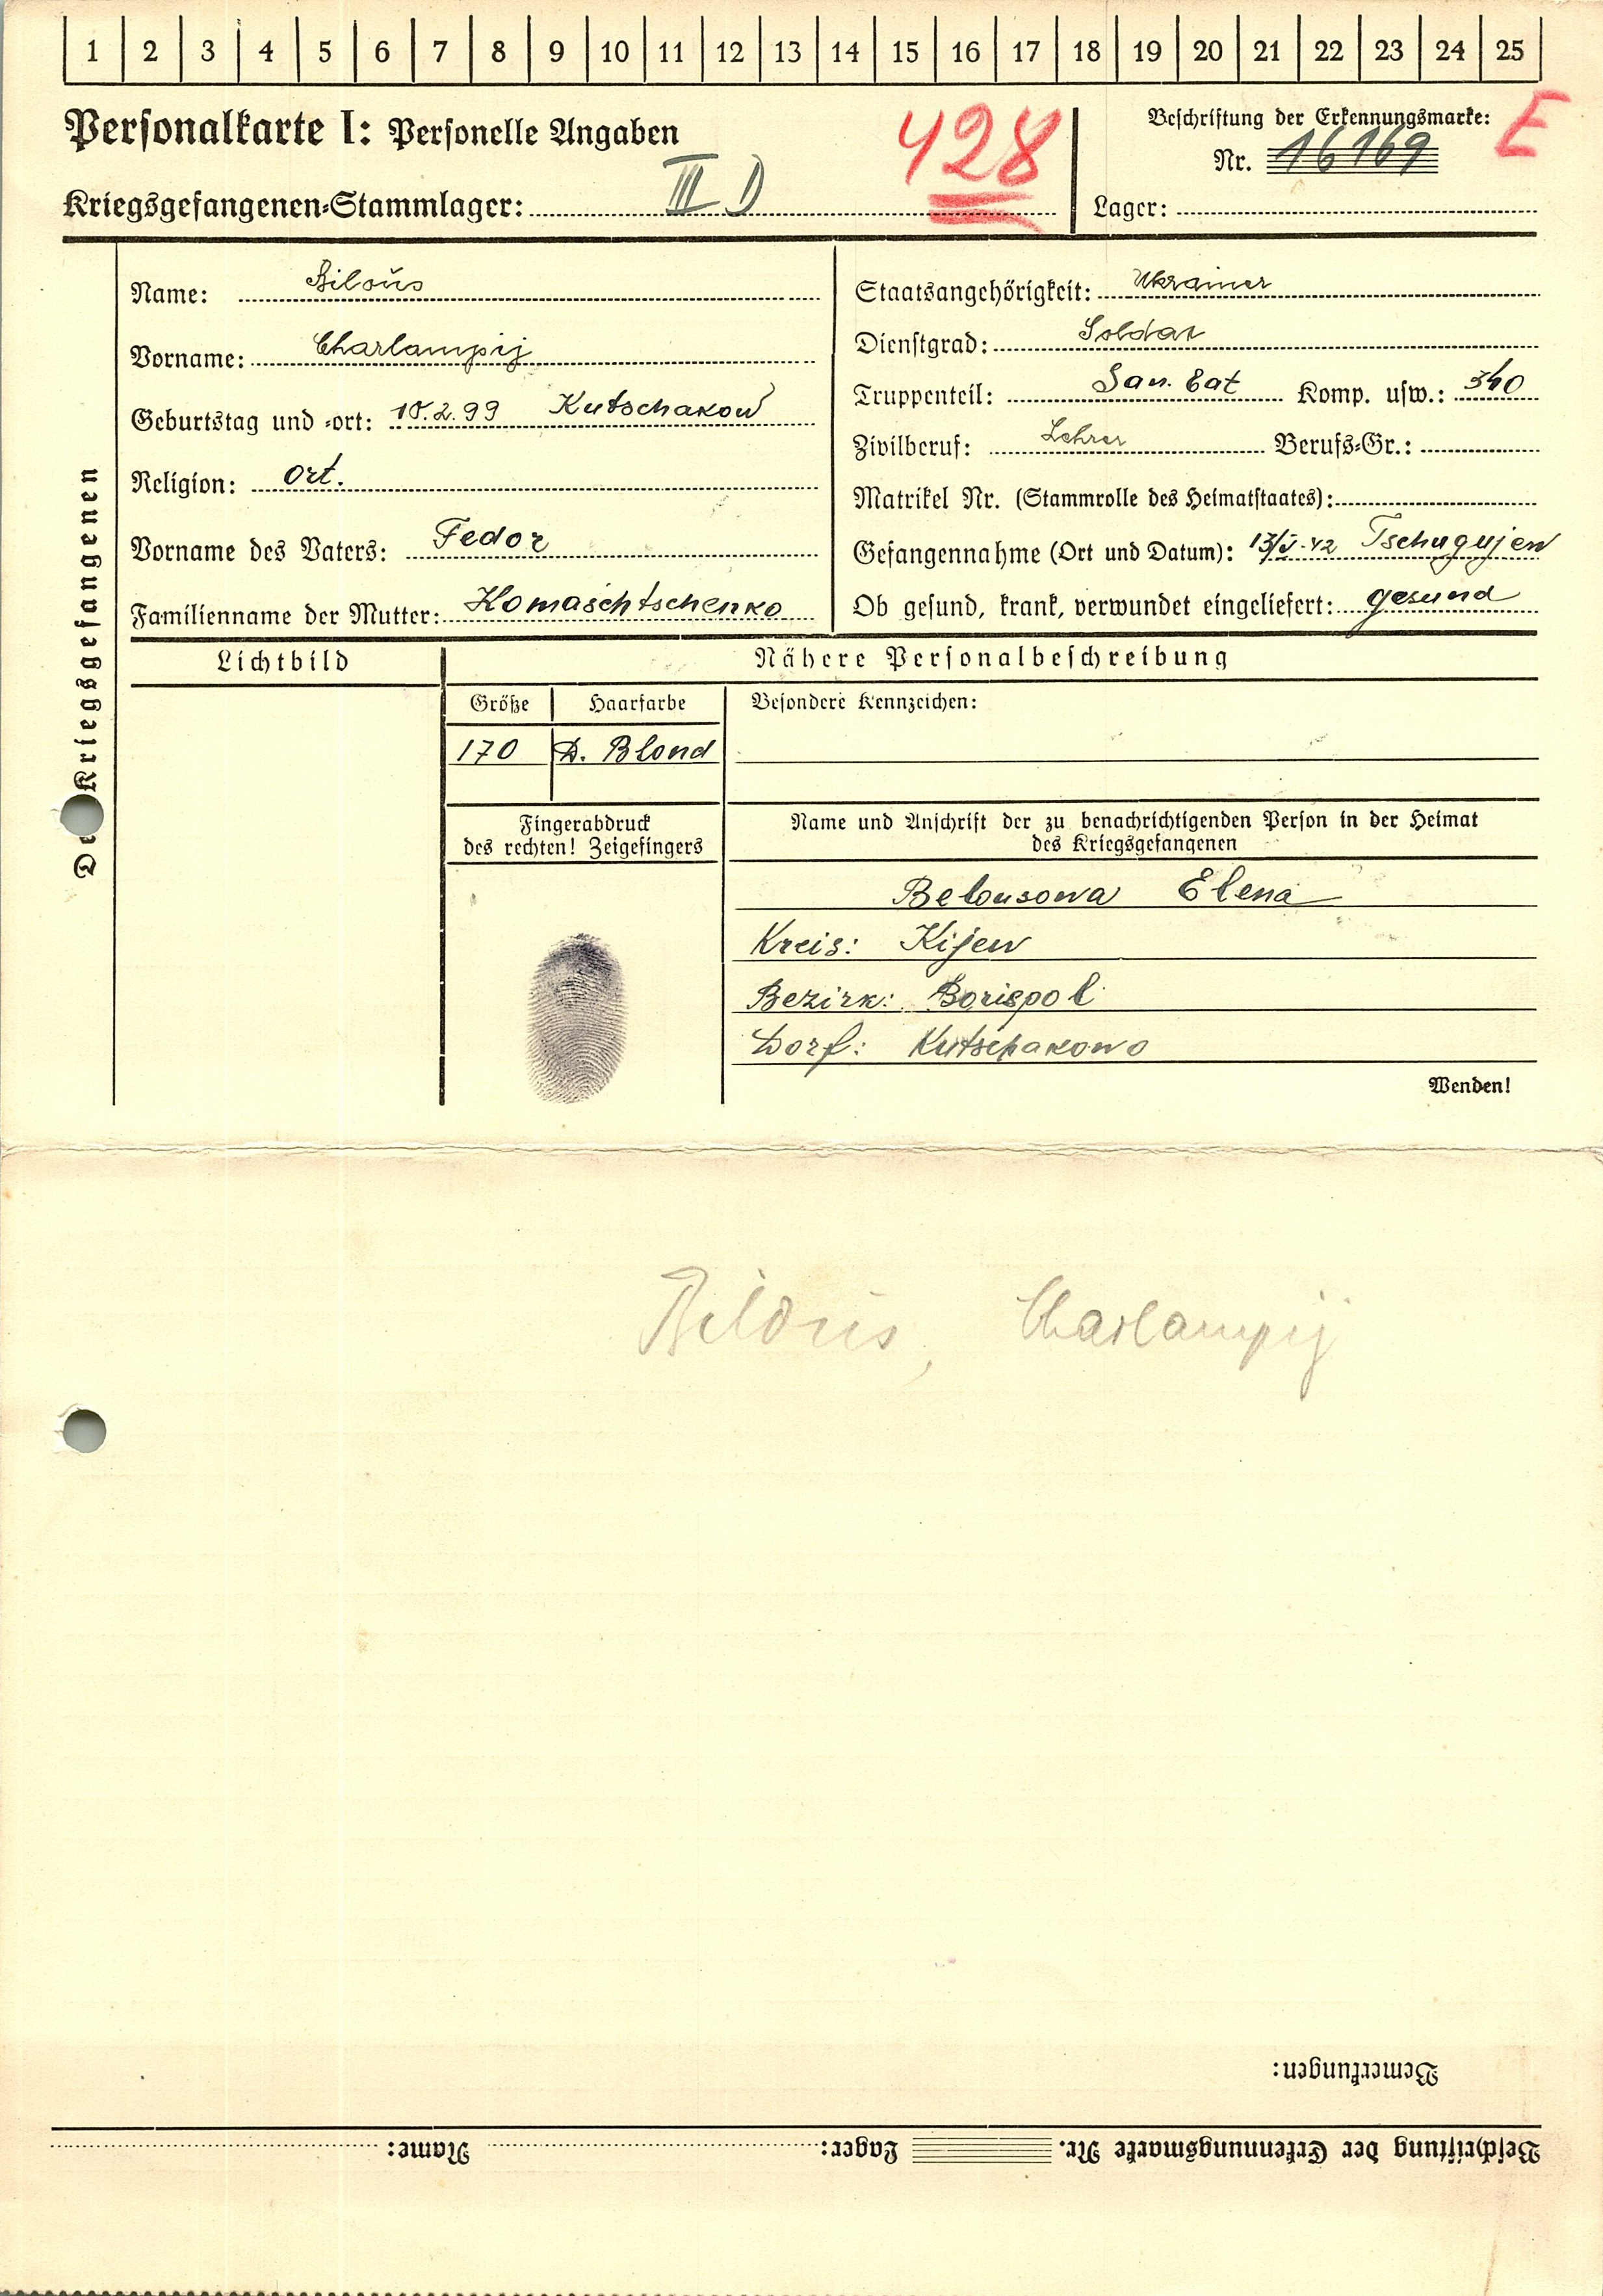 1 2 3 4 5 6 7 8 9 10 11 12 13 14 15 16 17 18 19 20 21 22 23 24 25
Personalkarte I: Personelle Angaben
428
Beschriftung der Erkennungsmarke:
E
Nr. 16169
Kriegsgefangenen-Stammlager: III D
Lager:
Des Kriegsgefangenen
Name: Biloŭs
Vorname: Charlampij
Geburtstag und -ort: 10.2.99 Kutschakow
Religion: ort.
Vorname des Vaters: Fedor
Familienname der Mutter: Homaschtschenko
Staatsangehörigkeit: Ukrainer
Dienstgrad: Soldat
Truppenteil: San. Bat Komp. usw.: 340
Zivilberuf: Lehrer Berufs-Gr.:
Matrikel Nr. (Stammrolle des Heimatstaates):
Gefangennahme (Ort und Datum): 13/V.42 Tschugujew
Ob gesund, krank, verwundet eingeliefert: gesund
Lichtbild
Nähere Personalbeschreibung
Größe Haarfarbe Besondere Kennzeichen:
170 D. Blond
Fingerabdruck
des rechten! Zeigefingers
Name und Anschrift der zu benachrichtigenden Person in der Heimat
des Kriegsgefangenen
Belousowa Elena
Kreis: Kijew
Bezirk: Borispol
Dorf: Kutschakowo
Wenden!
Biloŭs, Charlampij
Bemerkungen:
Beschriftung der Erkennungsmarke Nr. Lager: Name: